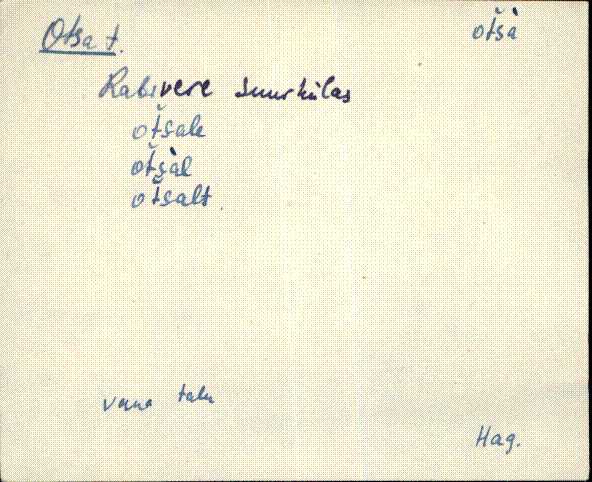 Otsa t.
otšà
Rabivere suurkülas
otšale
otšàl
otšalt.
vana talu
Hag.